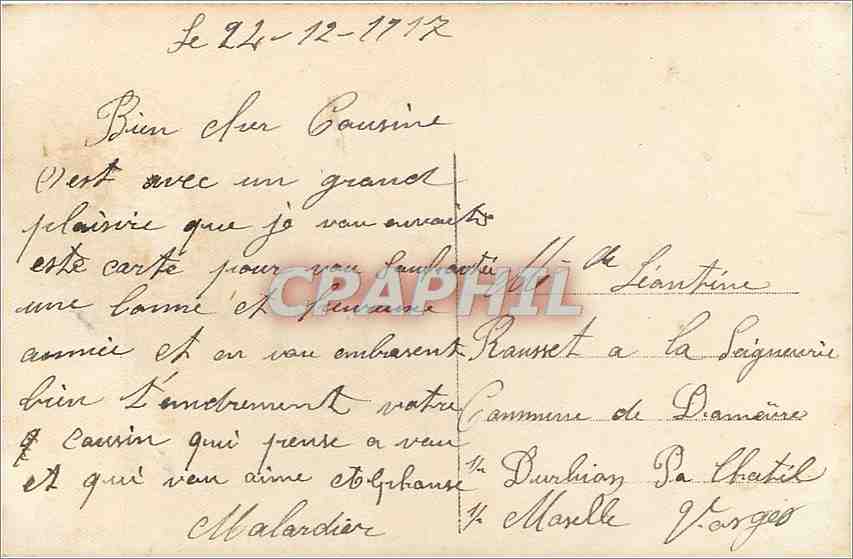 Le 24-12-1917
Bien cher Cousine
c'est avec un grand
plaisire que je vou envoit
este carte pour vou souhaitée
une bonne et heureuse
année et en vou embrasent
bien t'endrement votre
cousin qui pense a vou
et qui vou aime Alphonse
Malardier
CPAPHIL
Léontine
Rousset a la Seigneurie
Commune de Damèvre
s/s Durbion Pa Chatil
s/s Moselle Vosges